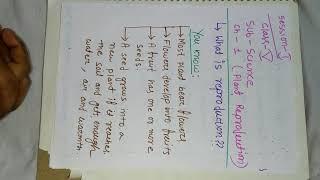 session-I
class-V
Sub-Science
Ch-1 (Plant Reproduction)
↳ What is reproduction??
You know:
→ Most plant bear flowers
→ Flowers develop into fruits
→ A fruit has one or more
seeds.
→ A seed grows into a
new plant if it reaches
the soil and gets enough
water, air and warmth